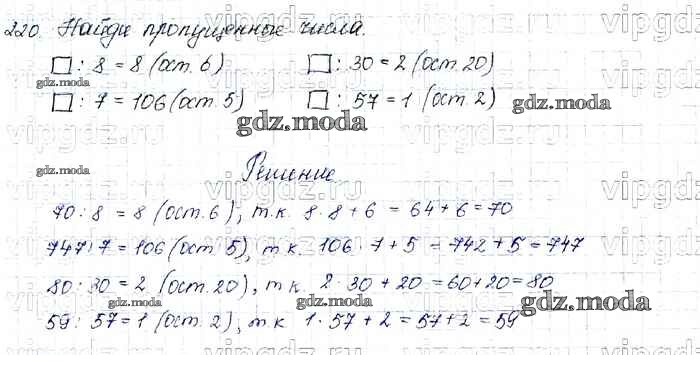 220 Найди пропущенные числа.
□ : 8 = 8 (ост. 6) □ : 30 = 2 (ост. 20)
□ : 7 = 106 (ост. 5) □ : 57 = 1 (ост. 2)
gdz.moda gdz.moda
Решение
gdz.moda
vipgdz.ru
70 : 8 = 8 (ост. 6), т.к. 8 · 8 + 6 = 64 + 6 = 70
747 : 7 = 106 (ост. 5), т.к. 106 · 7 + 5 = 742 + 5 = 747
80 : 30 = 2 (ост. 20), т.к. 2 · 30 + 20 = 60 + 20 = 80
gdz.moda gdz.moda gdz.moda
59 : 57 = 1 (ост. 2), т.к 1 · 57 + 2 = 57 + 2 = 59